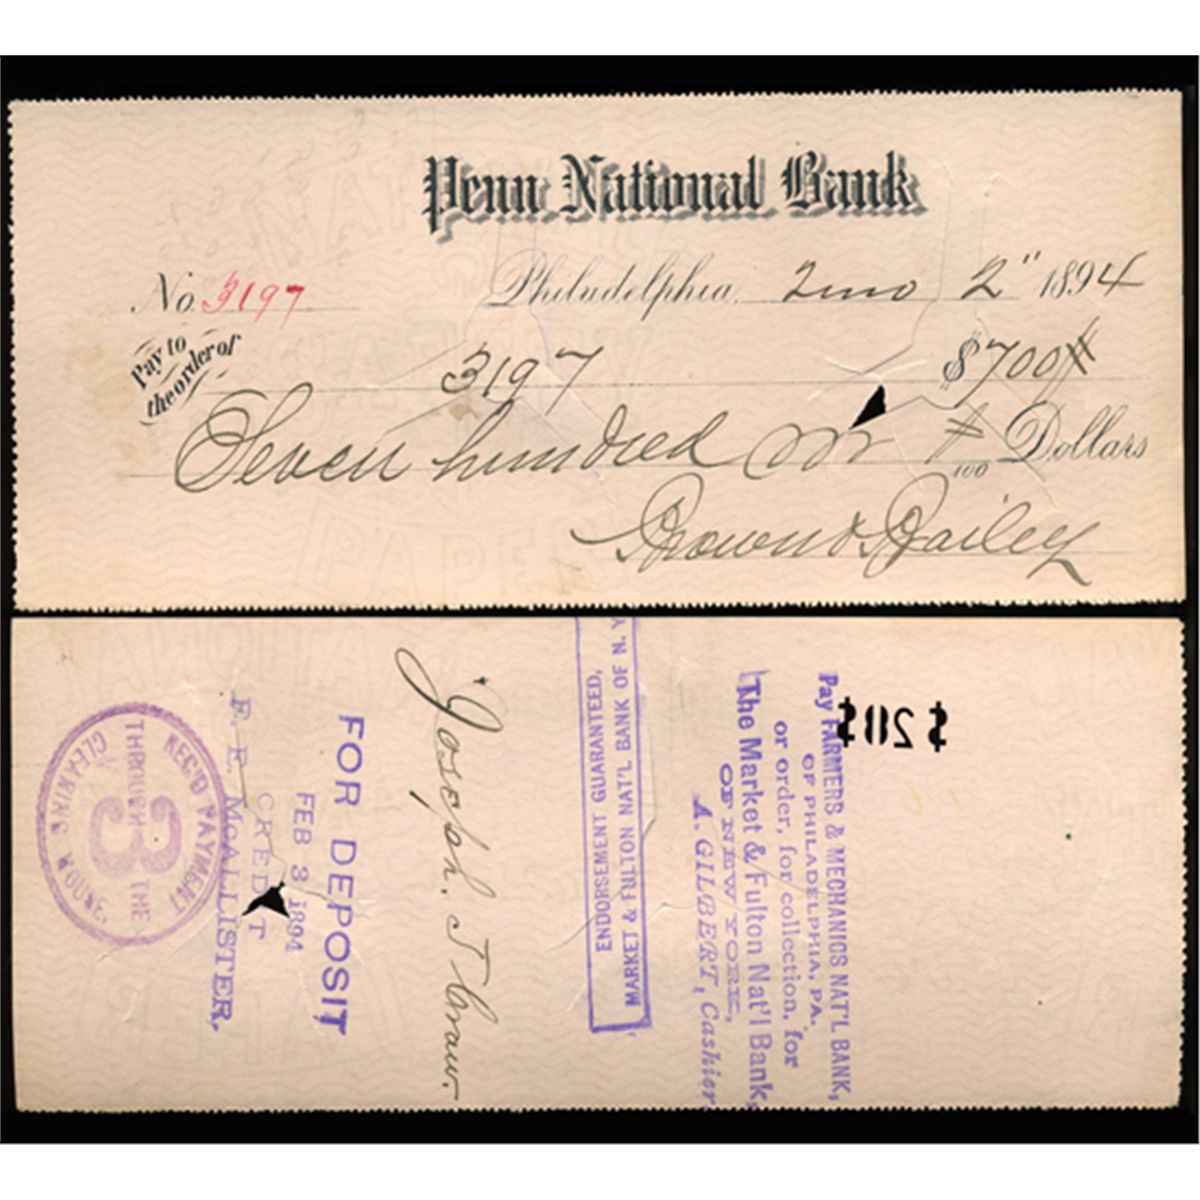 Penn National Bank
No. 3197 Philadelphia, 2mo 2" 1894
Pay to
the order of 3197 $700
Seven hundred 100 Dollars
Brown & Bailey
Pay FARMERS & MECHANICS NAT'L BANK,
OF PHILADELPHIA, PA.
or order, for collection, for
The Market & Fulton Nat'l Bank,
OF NEW YORK,
A. GILBERT, Cashier
ENDORSEMENT GUARANTEED,
MARKET & FULTON NAT'L BANK OF N. Y
Joseph. T
FOR DEPOSIT
FEB 3 1894
CREDIT
McALLISTER,
REC'D PAYMENT
THROUGH THE
3
CLEARING HOUSE.